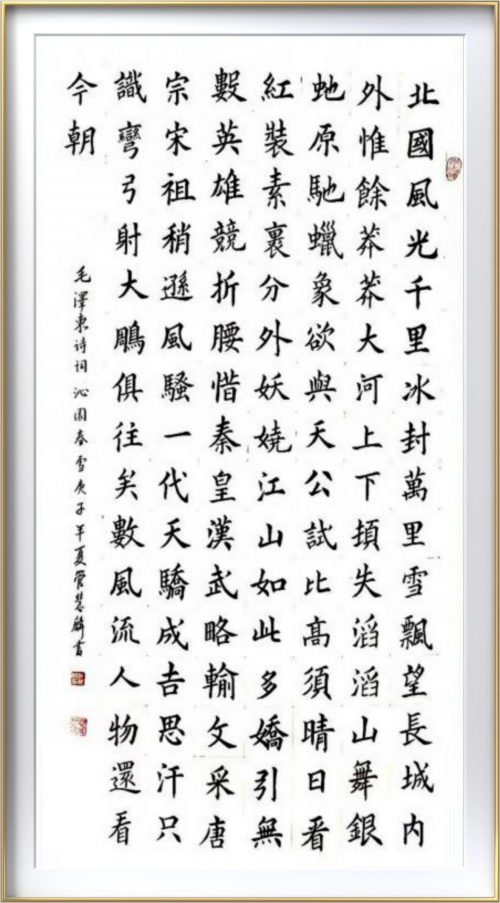 北國風光千里冰封萬里雪飄望長城内
外惟餘莽莽大河上下頓失滔滔山舞銀
虵原馳蠟象欲與天公試比高須晴日看
紅裝素裹分外妖嬈江山如此多嬌引無
數英雄競折腰惜秦皇漢武略輸文采唐
宗宋祖稍遜風騷一代天驕成吉思汗只
識彎弓射大鵰俱往矣數風流人物還看
今朝
毛澤東诗词沁園春雪庚子年夏管慧麟書